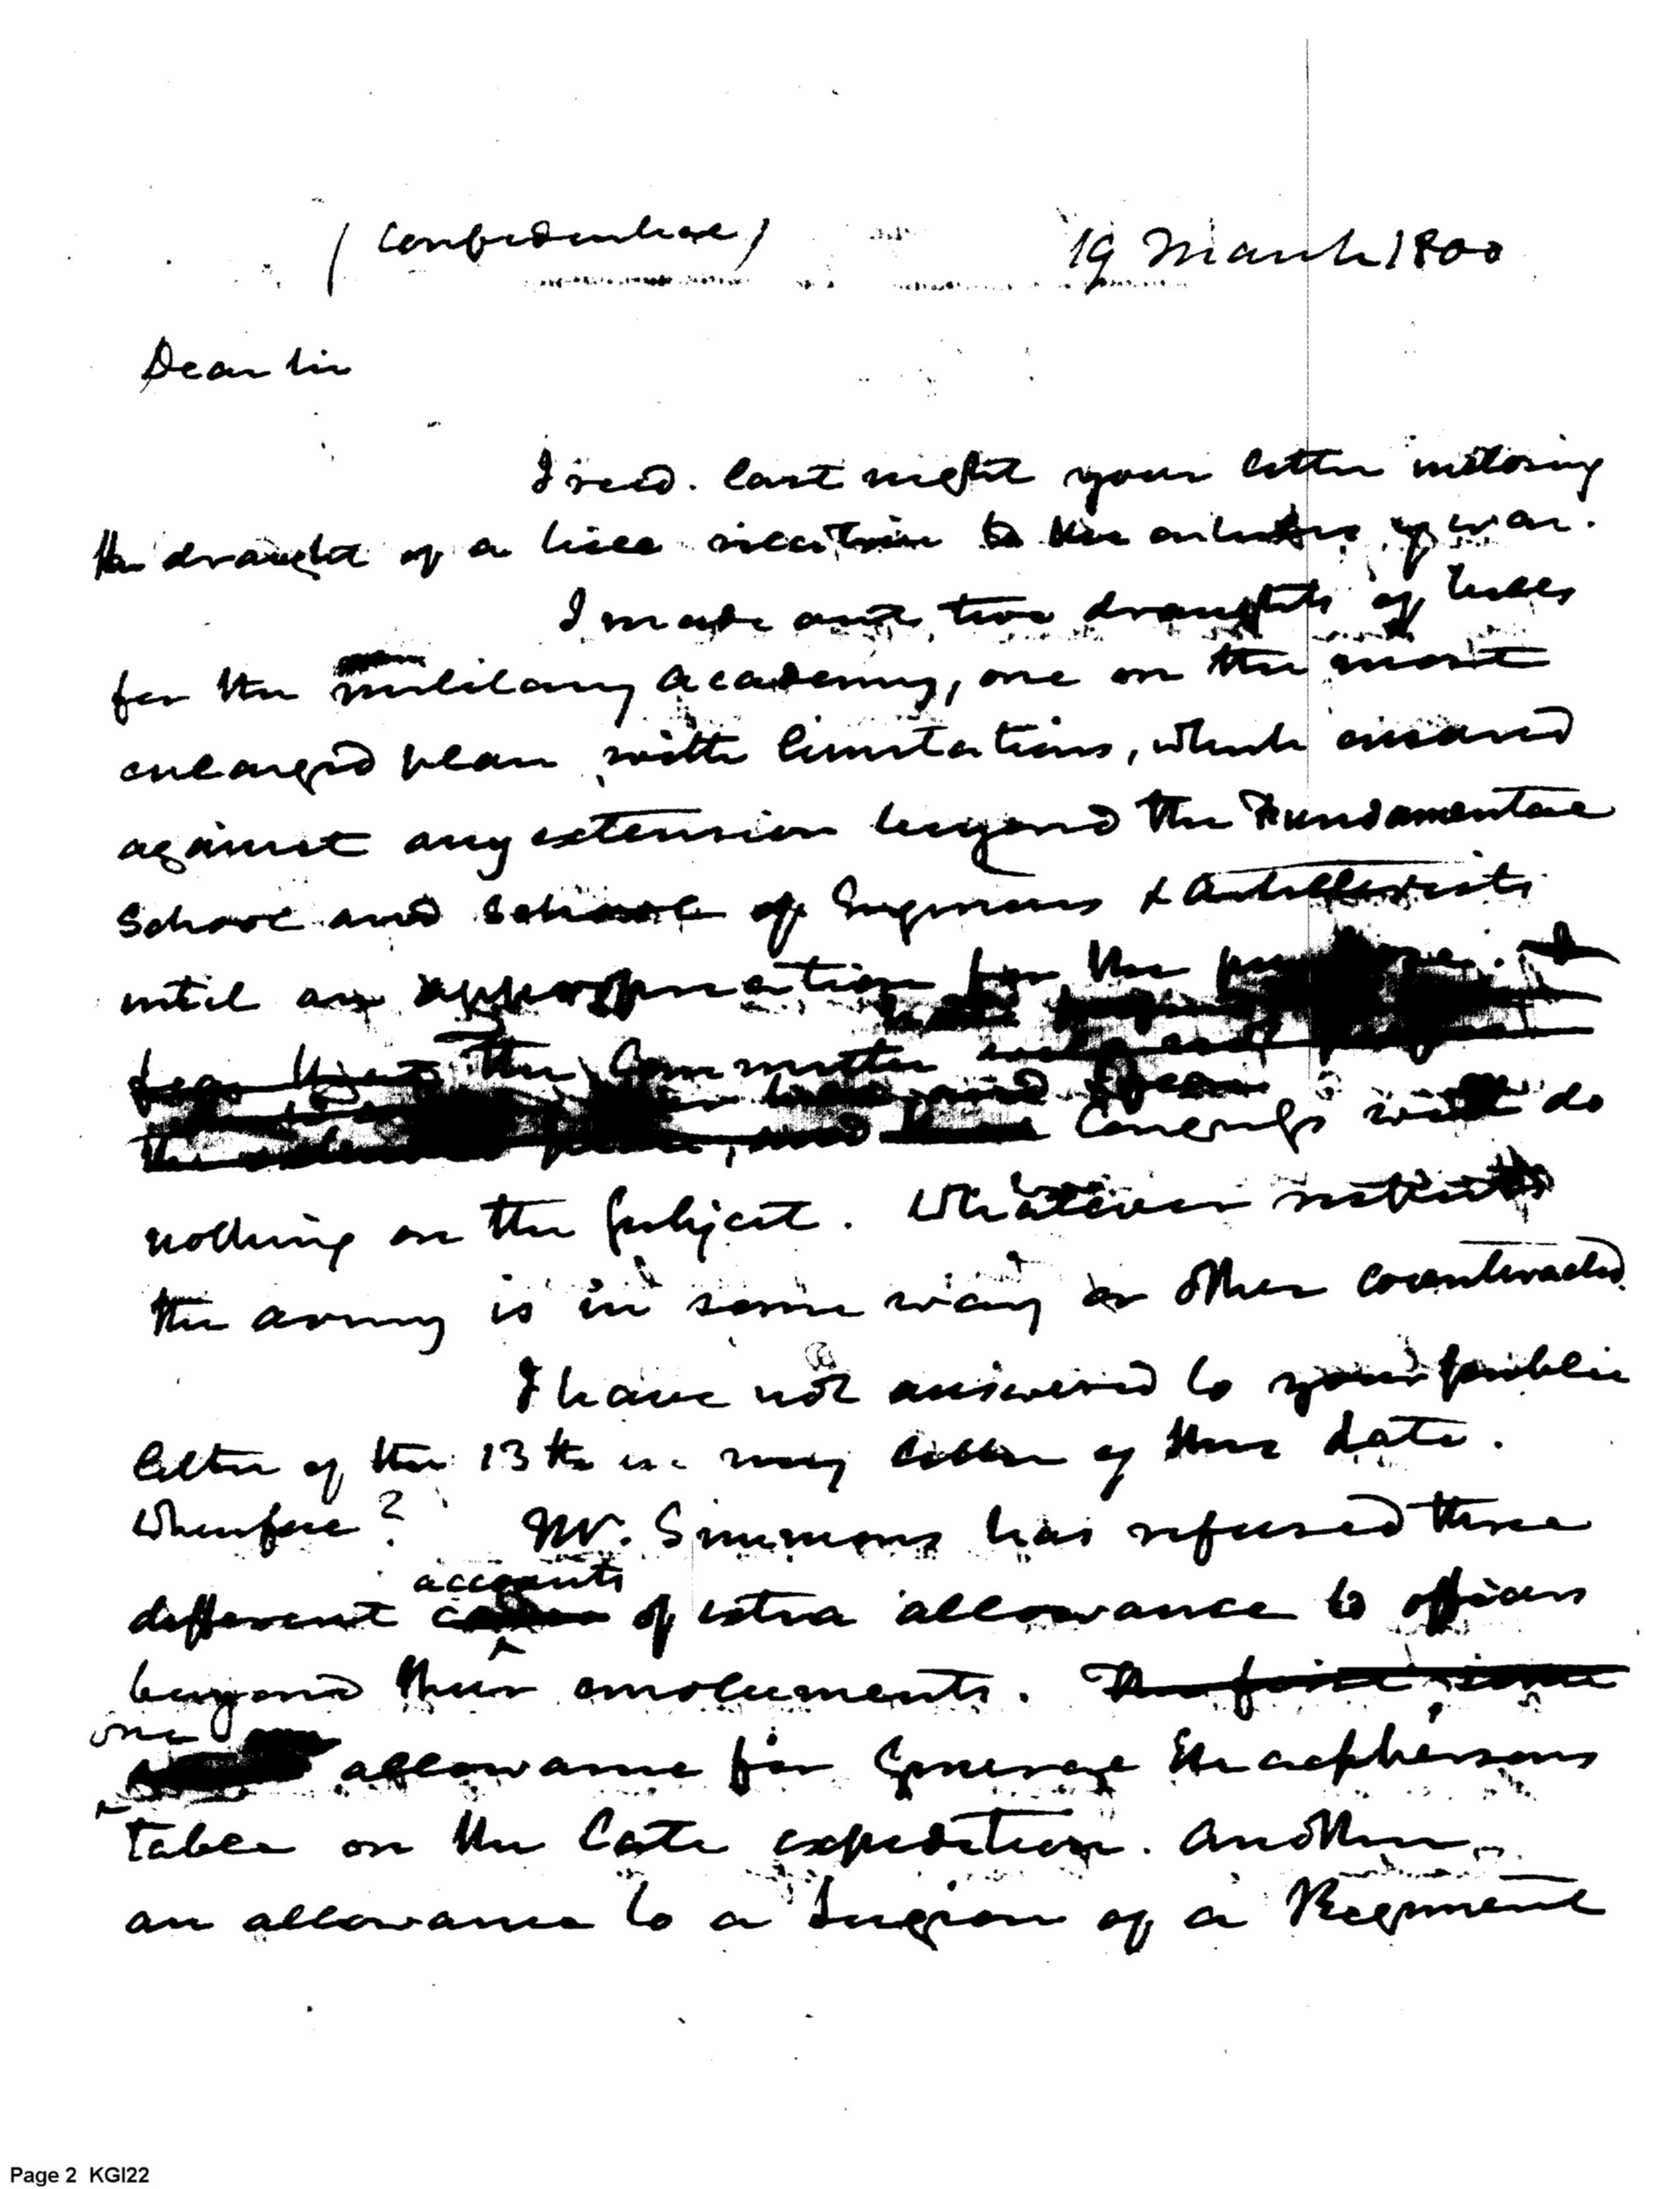 (Confidential)
19 March 1800
Dear Sir
I recd. last night your letter inclosing
the draught of a bill relative to the articles of war.
I made out two draughts of bills
for the military academy, one on the most
enlarged plan with limitations, which
against any extension beyond the Fundamental
School and School of Engineers & Artillerists
until an appropriation for the
the Committee
Congress will do
nothing on the subject. Whatever respects
the army is in some way or other counteracted
I have not answered to your public
letter of the 13th in my letter of this date.
Wherefore? Mr. Simmons has refused three
accounts
different of extra allowance to officers
beyond their emoluments. The first
one
allowance for General Macphersons
table on the late expedition. Another
an allowance to a Surgeon of a Regiment
Page 2 KGI22